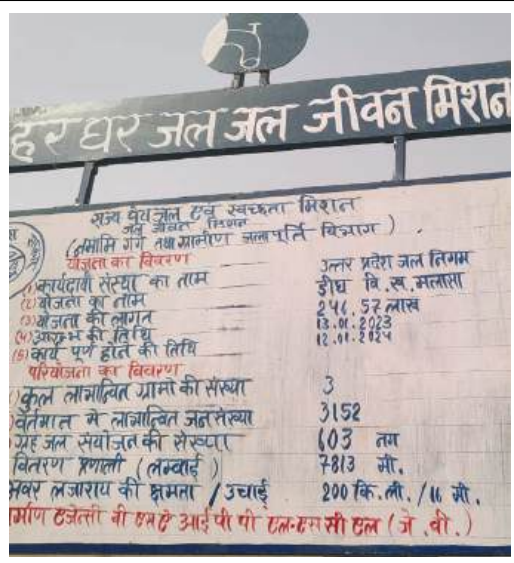 हर घर जल जल जीवन मिशन
राज्य पेयजल एवं स्वच्छता मिशन
जल जीवन मिशन
(नमामि गंगे तथा ग्रामीण जलापूर्ति विभाग)
योजना का विवरण
(1) कार्यदायी संस्था का नाम उत्तर प्रदेश जल निगम
(2) योजना का नाम डीघ वि.ख. मलासा
(3) योजना की लागत 246.57 लाख
(4) आरम्भ की तिथि 13.01.2023
(5) कार्य पूर्ण होने की तिथि 12.01.2024
परियोजना का विवरण
कुल लाभान्वित ग्रामो की संख्या 3
वर्तमान मे लाभान्वित जनसंख्या 3152
गृह जल संयोजन की संख्या 603 नग
वितरण प्रणाली (लम्बाई) 7813 मी.
जलाशय की क्षमता / उंचाई 200 कि.ली. / 16 मी.
एजेन्सी वी एस ए आई पी पी एल-एस सी एल (जे.वी.)